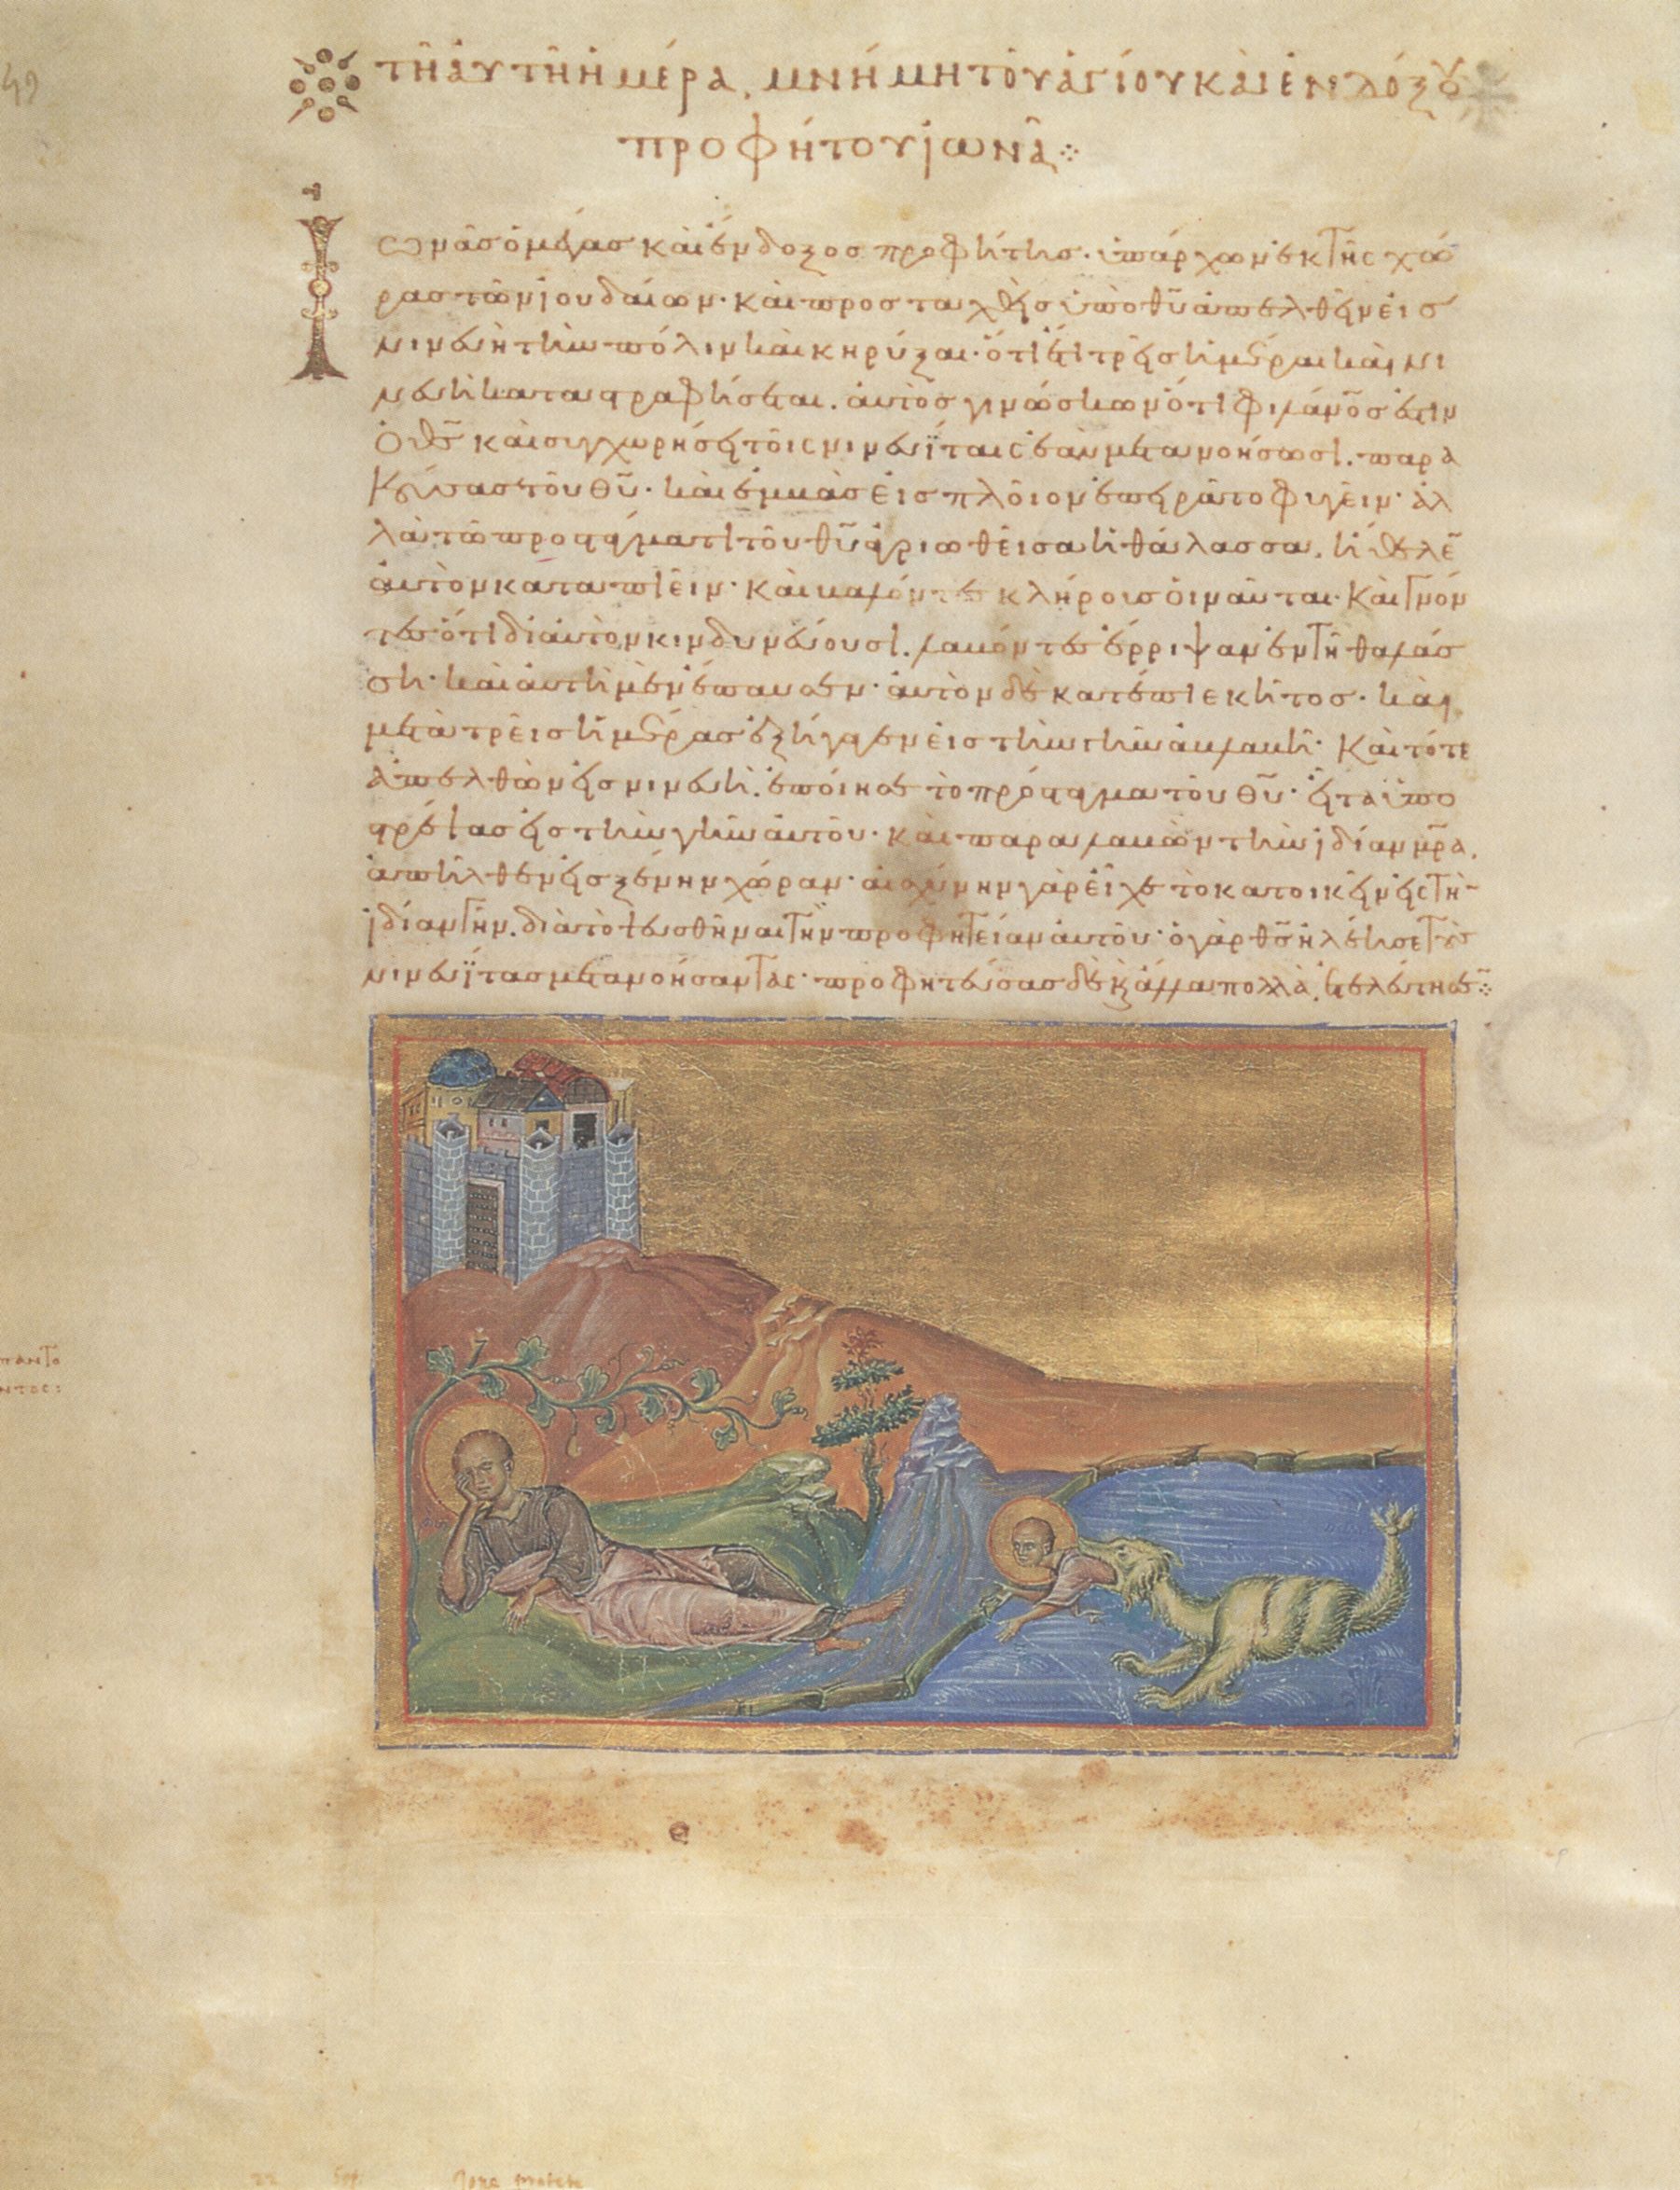 49
τῆ ἀυτῆ ἡμέρα. μνήμη τοῦ ἁγίου καὶ ἐνδόξου
προφήτου ἰωνᾶ
Ἰωνᾶσ ὁ μέγασ καὶ ἔνδοξοσ προφήτησ. ὑπάρχων ἐκ τῆς χώ
ρασ τῶν ἰουδαίων. καὶ προσταχθεὶσ ὑπὸ θῦ ἀπελθεῖν εἰσ
νινευὴ τὴν πόλιν καὶ κηρύξαι. ὅτι ἔτι τρεῖσ ἡμέραι καὶ νι
νευὴ καταστραφήσεται. ἀυτὸσ γινώσκων ὅτι φιλάνοσ ἐστιν
ὁ θσ καὶ συγχωρήσει τοῖς νινευΐταις ἐὰν μετανοήσωσι. παρα
κούσασ τοῦ θῦ. καὶ ἐμβὰσ εἰσ πλοῖον ἐπειρᾶτο φυγεῖν. ἀλ
λὰ τῶ προστάγματι τοῦ θῦ ἀγριωθεῖσα ἡ θάλασσα. ἤθελε
ἀυτὸν καταπιεῖν. καὶ βαλόντεσ κλήρουσ οἱ ναῦται. καὶ γνόν
τεσ ὅτι δι ἀυτὸν κινδυνεύουσι. λαβόντεσ ἔρριψαν ἐν τῆ θαλάσ
ση. καὶ ἀυτὴ μὲν ἔπαυσεν. ἀυτὸν δὲ κατέπιε κῆτοσ. καὶ
μετὰ τρεῖσ ἡμέρασ ἐξήγαγεν εἰσ τὴν γῆν ἀβλαβῆ. καὶ τότε
ἀπελθὼν εἰσ νινευὴ. ἐποίησε τὸ πρόσταγμα τοῦ θῦ. εἶτα ὑπο
στρέψασ εἰσ τὴν γῆν ἀυτοῦ. καὶ παραλαβὼν τὴν ἰδίαν μρα.
ἀπῆλθεν εἰσ ξένην χώραν. αἰσχύνην γὰρ εἶχε τὸ κατοικεῖν εἰς τὴν
ἰδίαν γῆν. διὰ τὸ ψευσθῆναι τὴν προφητείαν ἀυτοῦ. ὁ γὰρ θσ ἠλέησε τοὺσ
νινευΐτασ μετανοήσαντας. προφητεύσασ δὲ καὶ ἄλλα πολλὰ. ἐτελεύτησε
παντο
ντος: